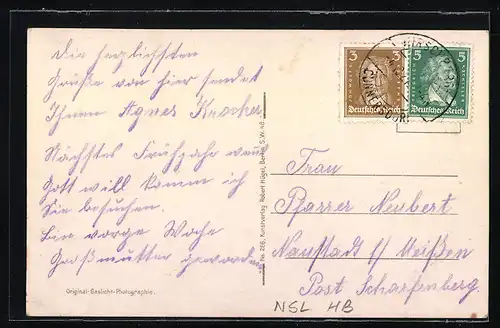 Die herzlichsten
Grüße von hier sendet
Ihnen Agnes Krocker
Nächstes Frühjahr wenn
Gott will komm ich
Sie besuchen.
Bin vorge Woche
Großmutter geworden
Original-Gaslicht-Photographie.
No. 266, Kunstverlag Robert Hügel, Berlin S.W. 48.
3 3
Deutsches Reich
5 5
Deutsches Reich
HIRSCHBERG
CUNNERSDORF
Frau
Pfarrer Neubert
Naustadt b/ Meißen
Post Scharfenberg.
NSL HB